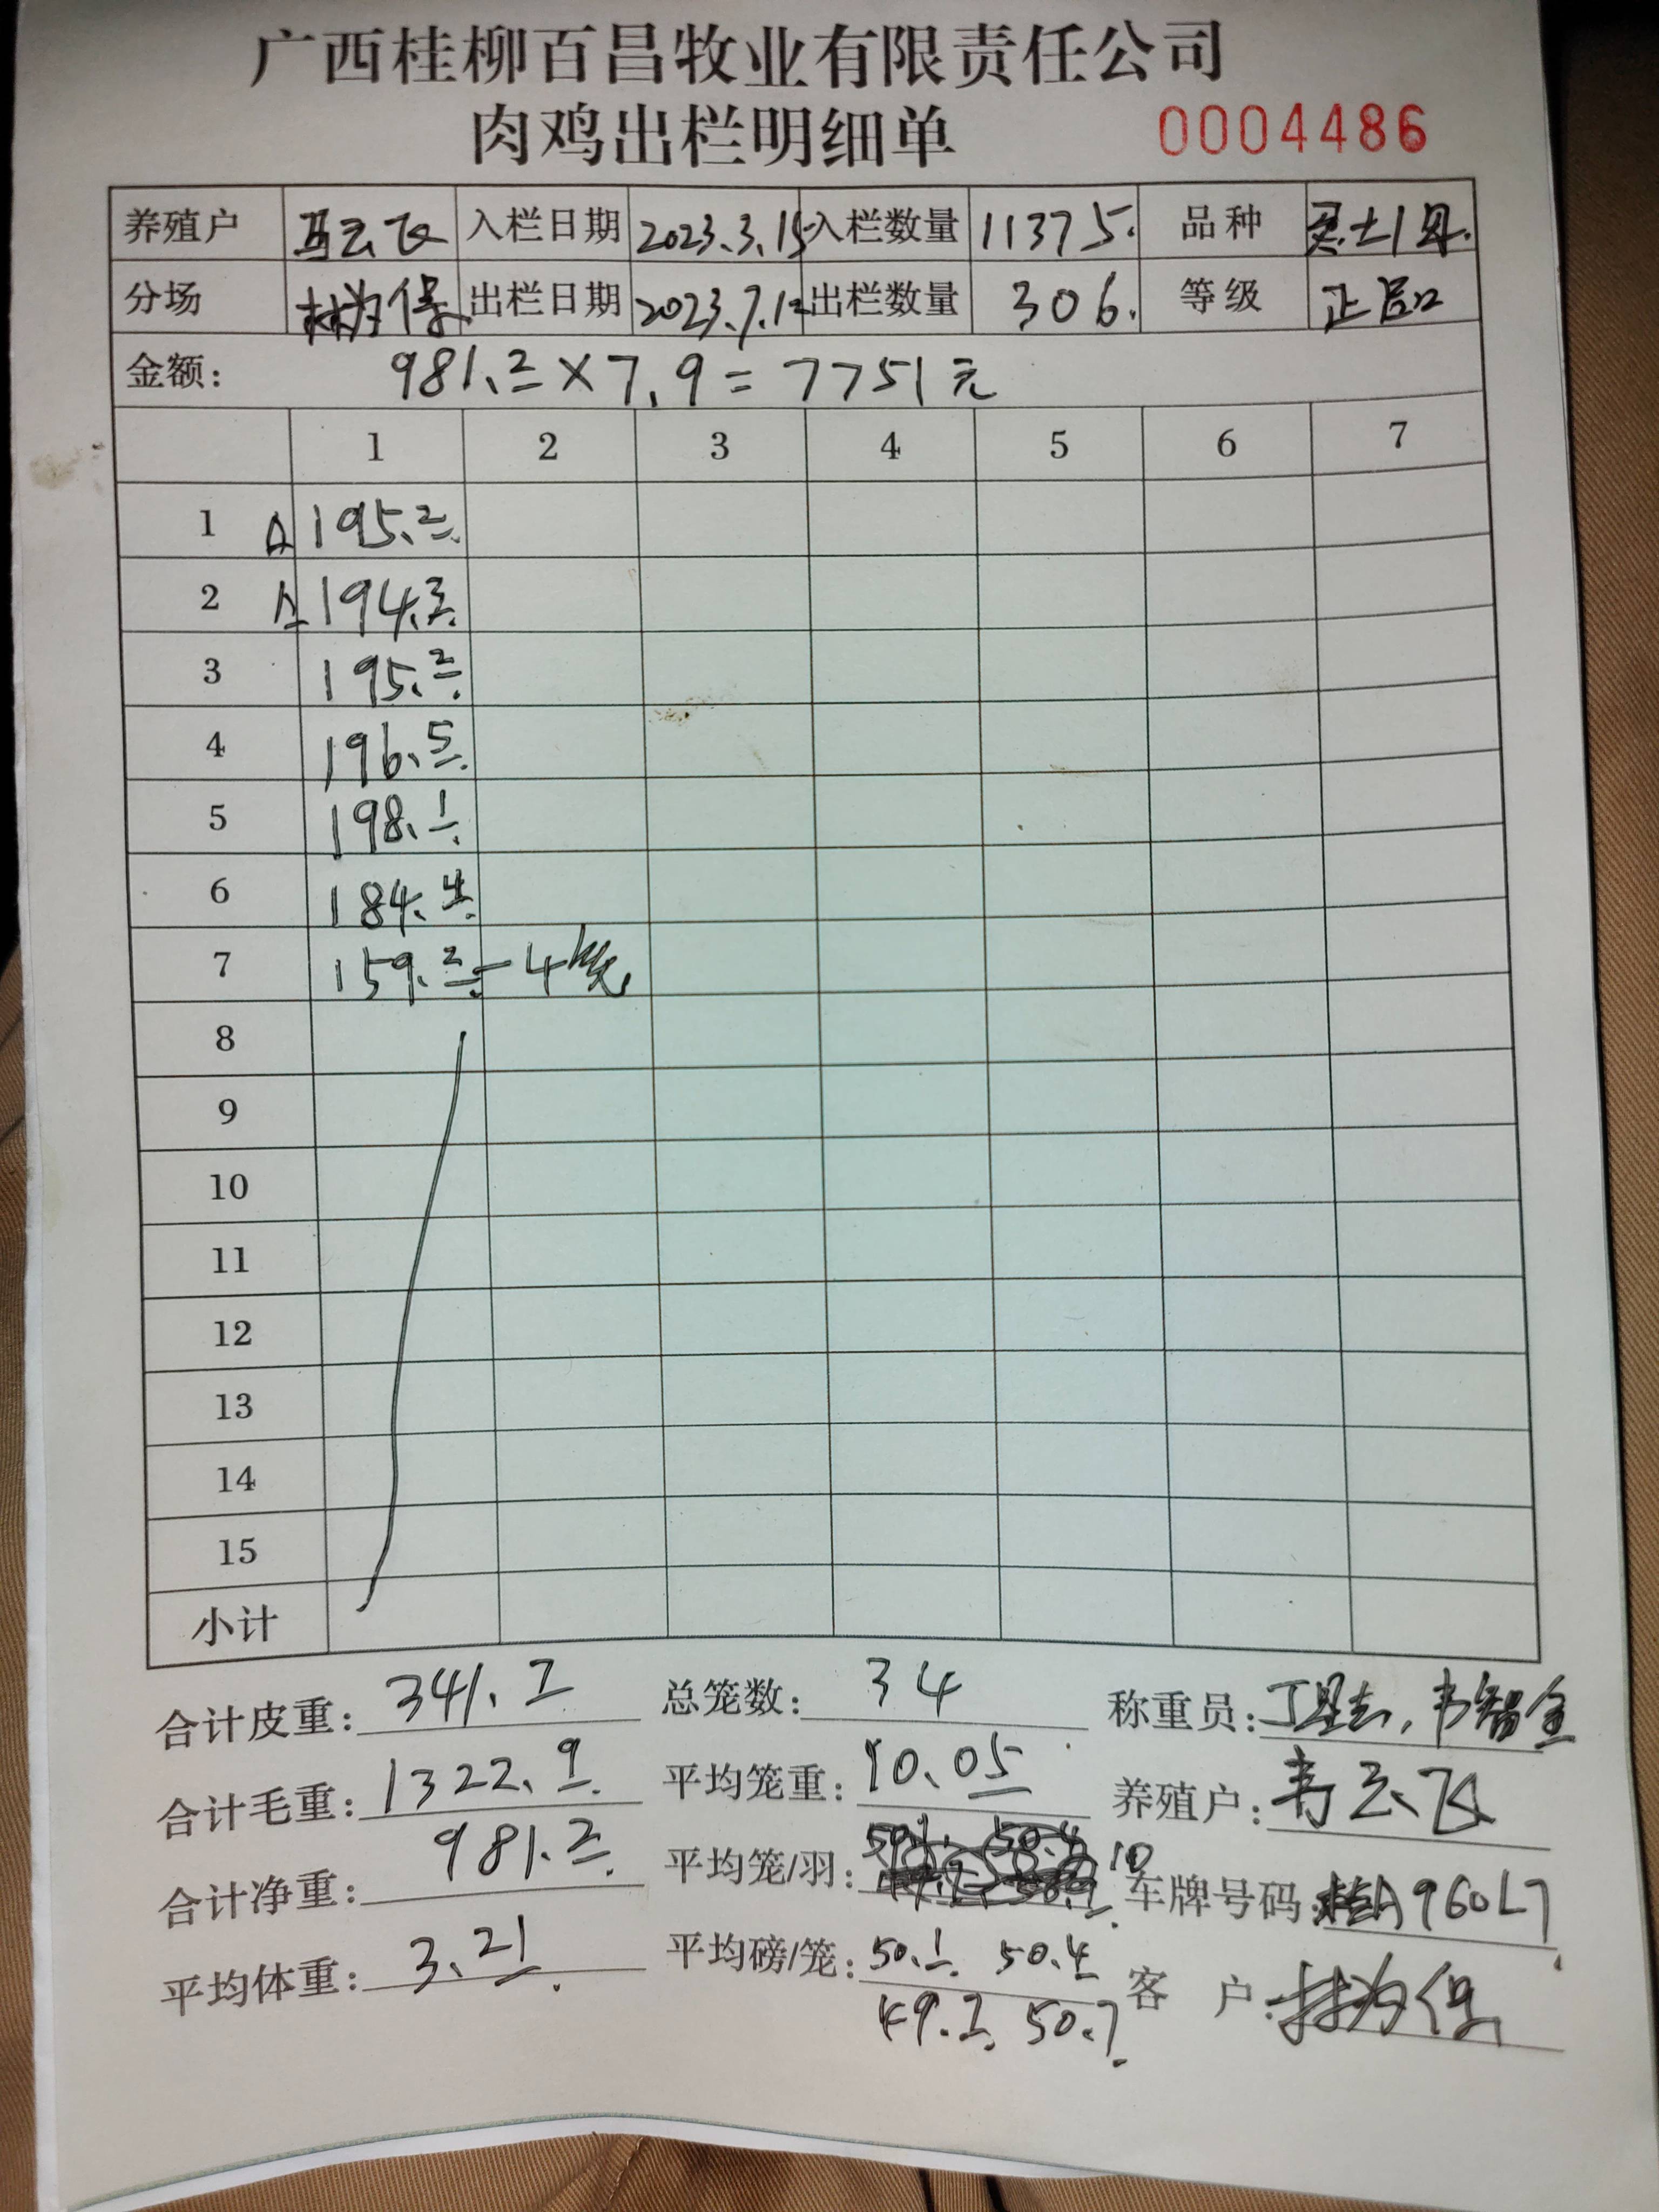 广西桂柳百昌牧业有限责任公司
肉鸡出栏明细单 0004486
养殖户 入栏日期 2023.3.15 入栏数量 11375. 品种
分场 出栏日期 2023.7.12 出栏数量 306. 等级 正品
金额: 981.2×7.9=7751元
1 2 3 4 5 6 7
1 195.2
2 194.3
3 195.2
4 196.5
5 198.1
6 184.4
7 159.2 - 4
8
9
10
11
12
13
14
15
小计
合计皮重: 341.7 总笼数: 34 称重员:
合计毛重: 1322.9 平均笼重: 10.05 养殖户: 韦云飞
合计净重: 981.2 平均笼/羽: 10 车牌号码: 桂A960L7
平均体重: 3.21 平均磅/笼: 50.1 50.4 客 户:
49.2 50.7